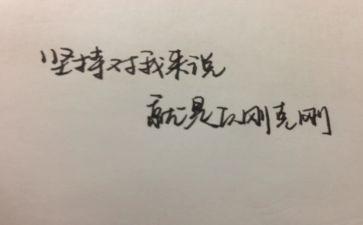 坚持对我来说
就是以刚克刚